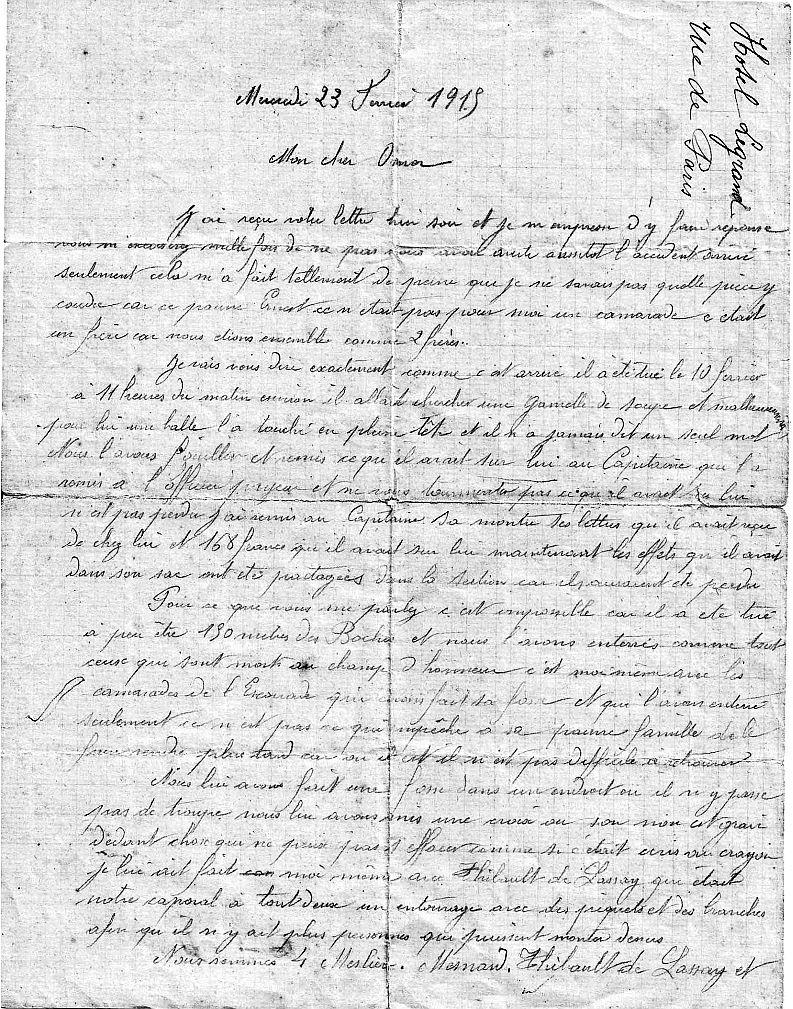 Hotel Legrand
rue de Paris
Mercredi 23 Fevrier 1915
Mon cher Omer
J'ai reçu votre lettre hier soir et je m'empresse d'y faire réponse
vous m'excuserez mille fois de ne pas vous avoir aussitot l'accident arrivé
seulement cela m'a fait tellement de peine que je ne savais pas quelle piece y
coudre car ce pauvre Ernest ce n'etait pas pour moi un camarade c'etait
un frère car nous etions ensemble comme 2 frères.
Je vais vous dire exactement comme c'est arrivé il a été tué le 10 fevrier
à 11 heures du matin environ il allait chercher une gamelle de soupe et malheureusement
pour lui une balle l'a touché en pleine tête et il n'a jamais dit un seul mot
Nous l'avons fouiller et remis ce qu'il avait sur lui au Capitaine qui l'a
remis a l'officier payeur et ne vous tourmentez pas ce qu'il avait sur lui
n'est pas perdu j'ai remis au Capitaine sa montre ses lettres qu'il avait reçu
de chez lui et 168 francs qu'il avait sur lui maintenant les effets qu'il avait
dans son sac ont été partagées dans la section car ils auraient été perdu
Pour ce que vous me parlez c'est impossible car il a été tué
à peu être 130 mètres des Boches et nous l'avons enterrés comme tout
ceuse qui sont morts au champ d'honneur c'est moi même avec les
camarades de l'Escouade qui avons fait sa fosse et qui l'avons enterré
seulement ce n'est pas ce qui empêche a sa pauvre famille de le
faire rendre plus tard car ou il est il n'est pas difficile a retrouver
Nous lui avons fait une fosse dans un endroit ou il n'y passe
pas de troupe nous lui avons mis une croix ou son nom est gravé
dedant chose qui ne peux pas s'effacer comme si c'etait ecris au crayon
je lui ait fait moi même avec Thibault de Lassay qui etait
notre caporal à tout deux un entourage avec des piquets et des branches
afin qu'il n'y ait plus personnes qui puissent monter dessus
Nous sommes 4 Meslier. Mesnard. Thibault de Lassay et